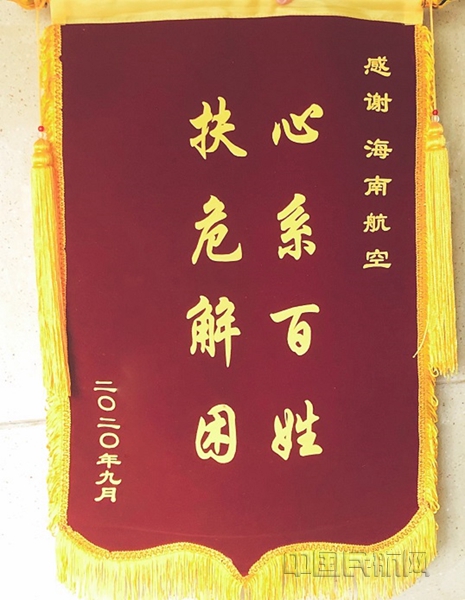 感谢 海南航空
心系百姓
扶危解困
二〇二〇年九月
中国民航网